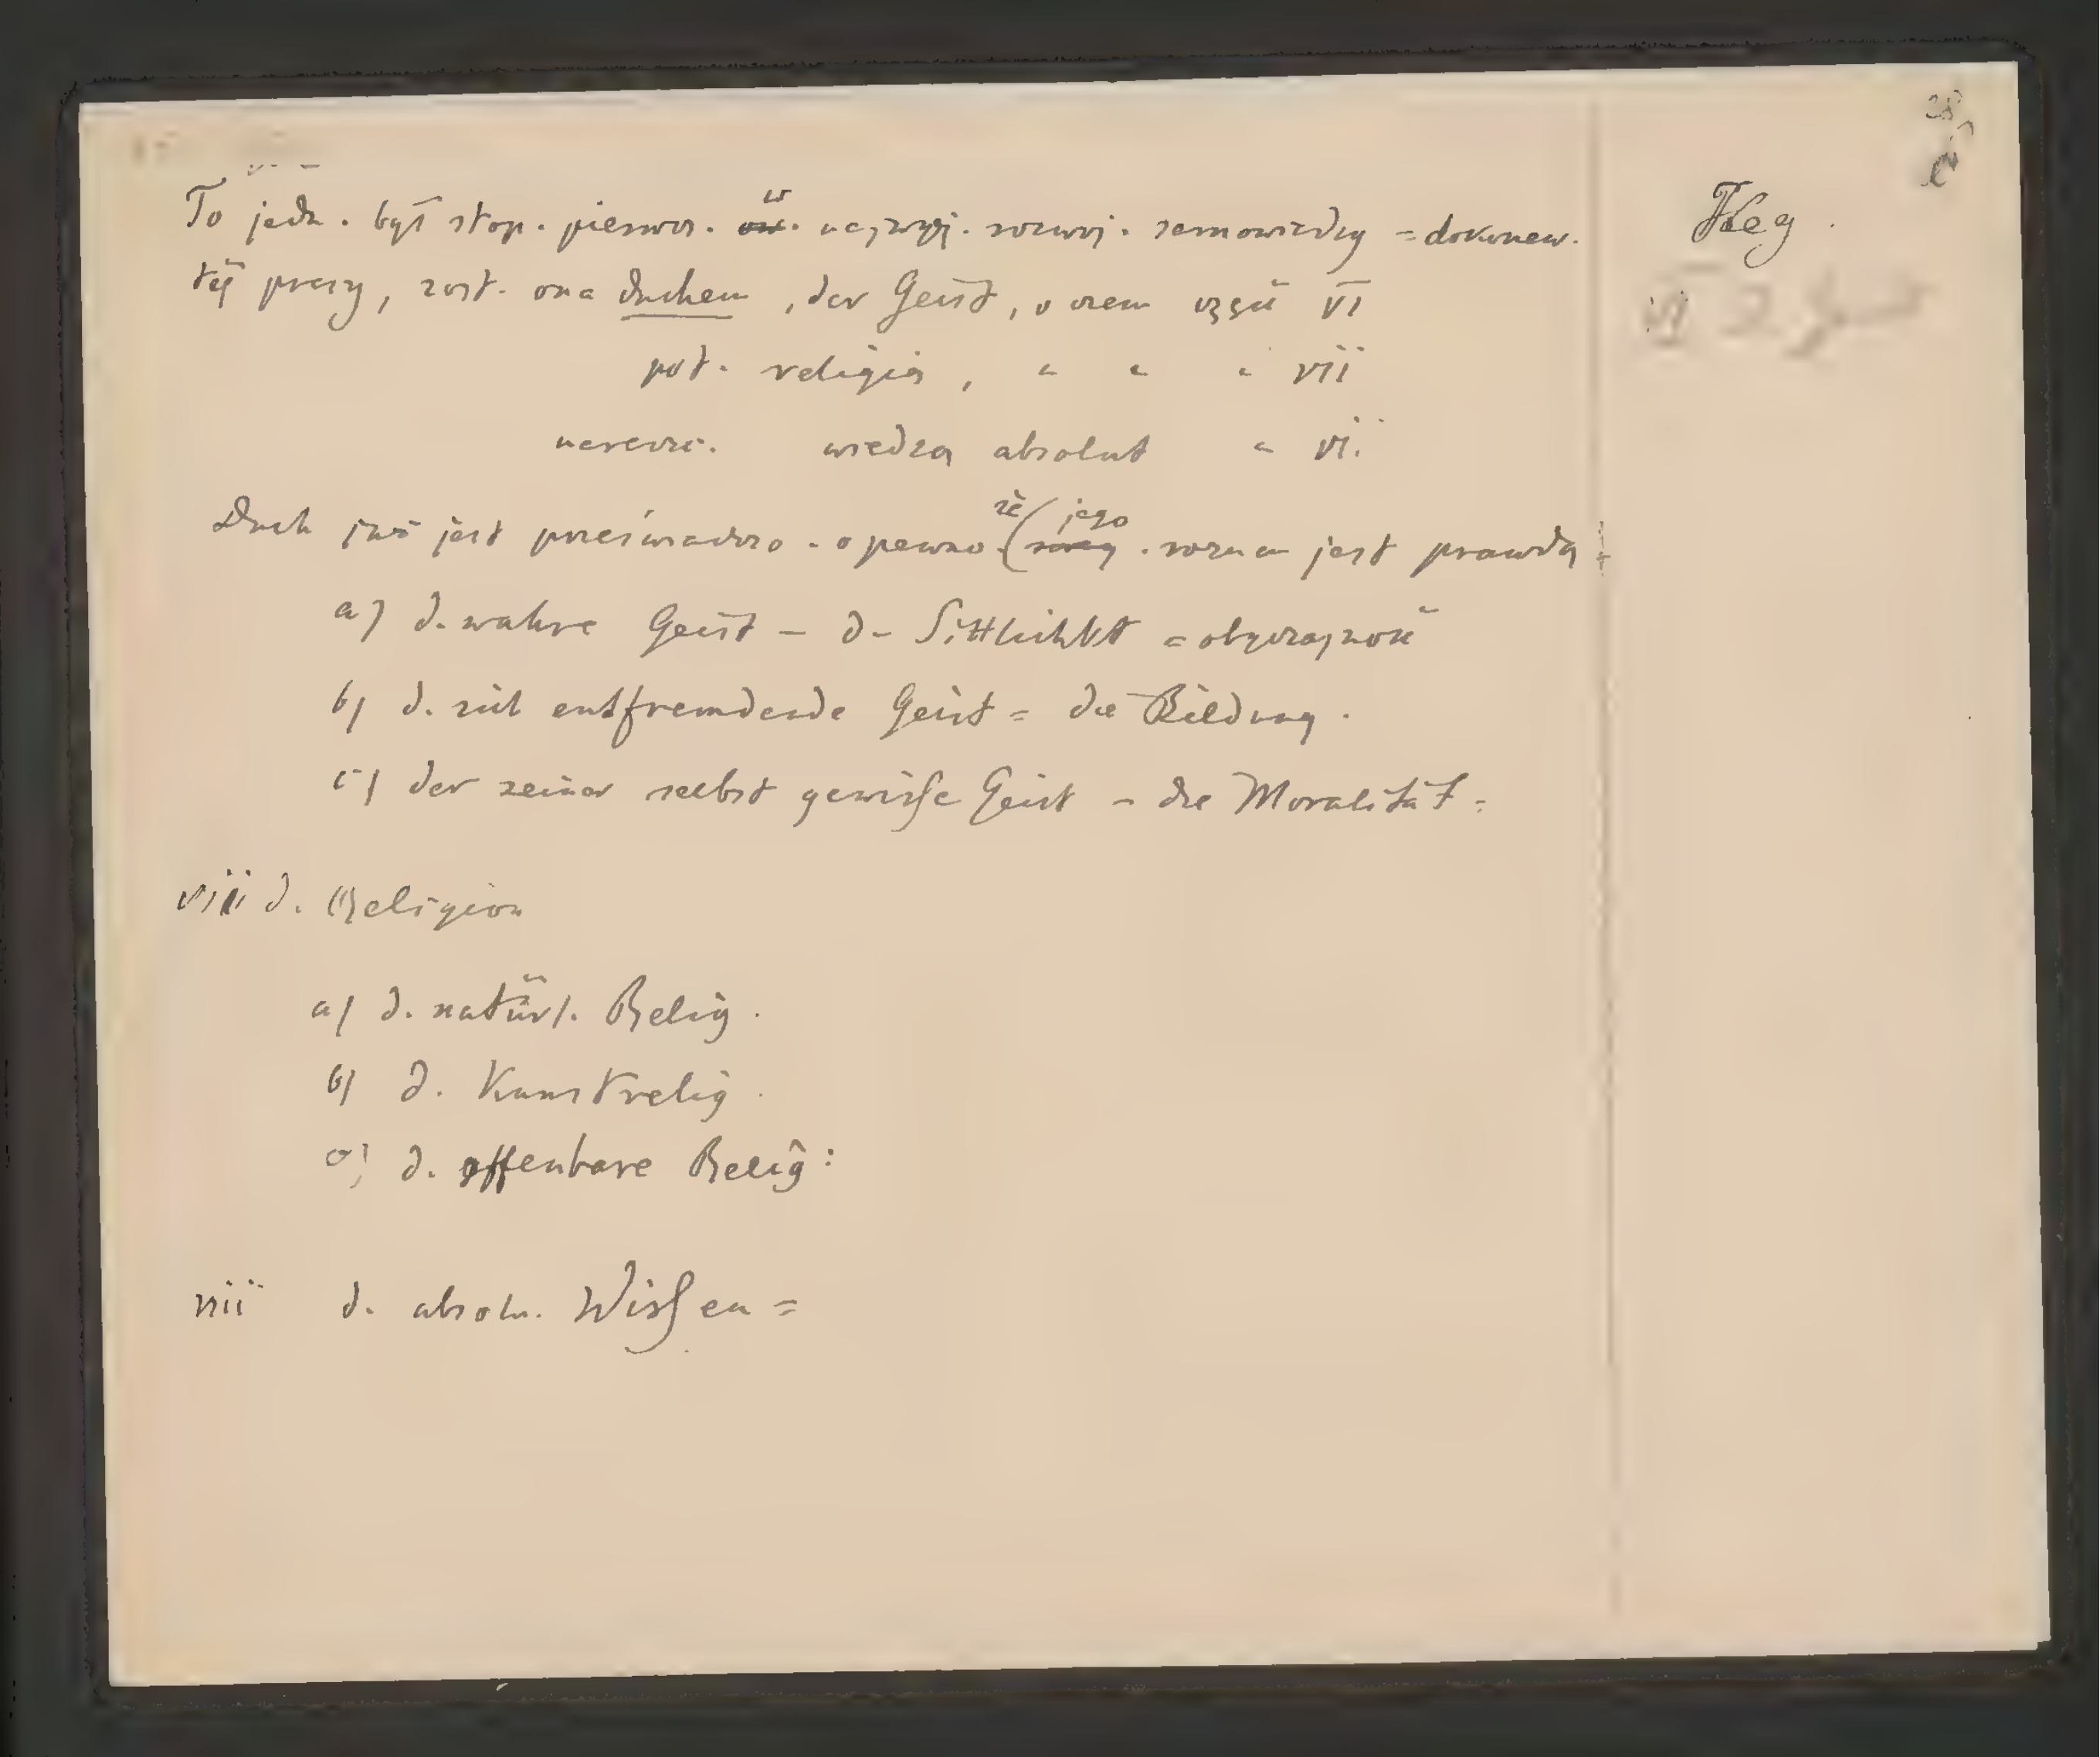 To jedn. był stop. pierwsz. w najwyż. rozwoj. samowiedzy = dokonaw.
tej pracy, zost. ona duchem, der Geist, o czem część VI
pot. religią, " " " VII
nareszc. wiedzą absolut " VI.
Duch już jest przeświadczo. o pewno. że (jego rozum jest prawdą:
a) d. wahre Geist – d. Sittlichkt = obyczajność
b) d. sich entfremdende Geist = die Bildung.
c) der seiner selbst gewisse Geist – die Moralität =
vii d. Religion
a) d. natürl. Relig.
b) d. Kunstrelig.
c) d. offenbare Relig:
viii d. absolu. Wissen =
Heg.